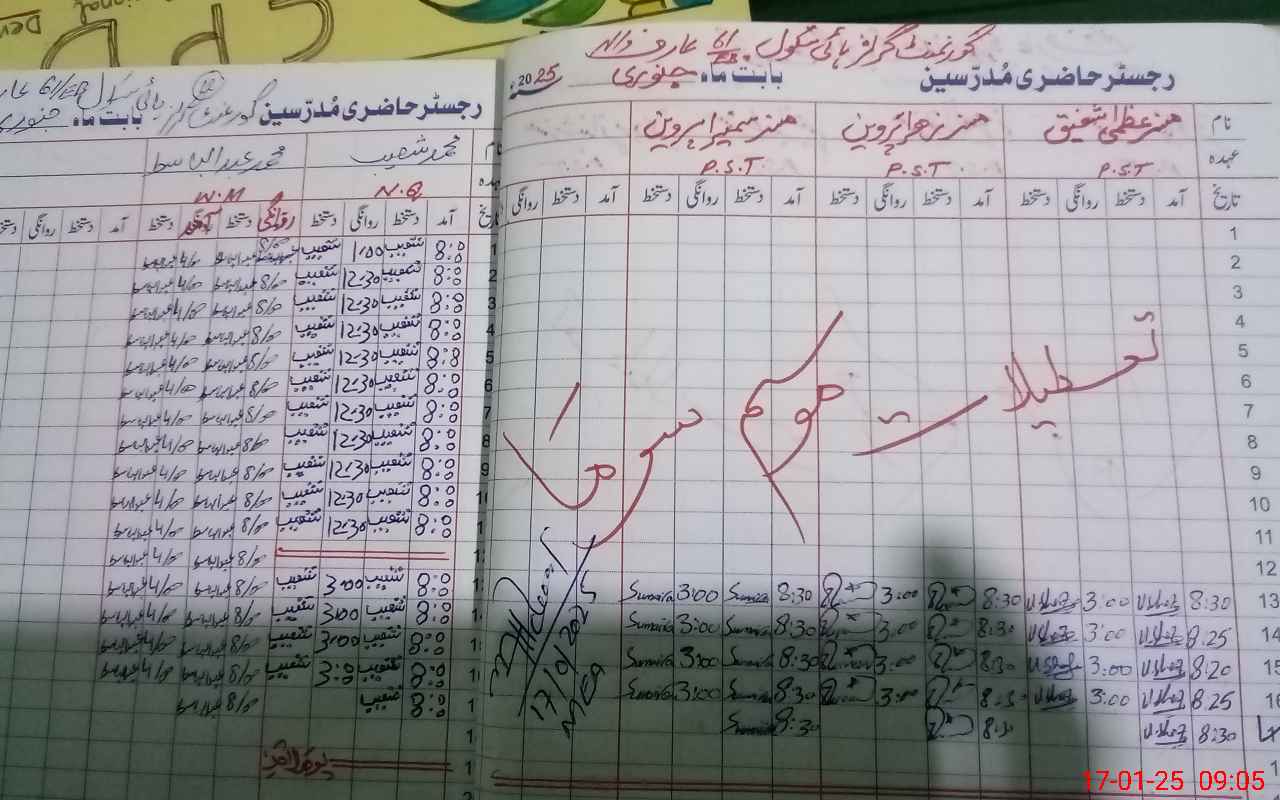 گورنمنٹ گرلز ہائی سکول 61/EB عارف والہ
رجسٹر حاضری مُدرّسین بابت ماہ جنوری 2025ء
نام مسز عظمیٰ شفیق مسز زہرا پروین مسز سمیرا پروین
عہدہ P.S.T P.S.T P.S.T
تاریخ آمد دستخط روانگی دستخط آمد دستخط روانگی دستخط آمد دستخط روانگی دستخط آمد دستخط روانگی
1
2
3
4
5
6
7
8
9
10
11
12
تعطیلات موسم سرما
13 8:30 3:00 8:30 3:00 8:30 Sumaira 3:00 Sumaira
14 8:25 3:00 8:30 3:00 8:30 Sumaira 3:00 Sumaira
15 8:20 3:00 8:30 3:00 8:30 Sumaira 3:00 Sumaira
16 8:25 3:00 8:30 3:00 8:30 Sumaira 3:00 Sumaira
17 8:30 8:30 8:30 Sumaira
17/01/2025
رجسٹر حاضری مُدرّسین گورنمنٹ گرلز ہائی سکول 61/EB
بابت ماہ جنوری
محمد شعیب محمد عبدالباسط
N.Q W.M
تاریخ آمد دستخط روانگی دستخط روانگی دستخط آمد دستخط آمد دستخط روانگی
1 8:0 شعیب 1:00 شعیب 8/0 عبدالباسط 4/0 عبدالباسط
2 8:0 شعیب 12:30 شعیب 8/0 عبدالباسط 4/0 عبدالباسط
3 8:0 شعیب 12:30 شعیب 8/0 عبدالباسط 4/0 عبدالباسط
4 8:0 شعیب 12:30 شعیب 8/0 عبدالباسط 4/0 عبدالباسط
5 8:0 شعیب 12:30 شعیب 8/0 عبدالباسط 4/0 عبدالباسط
6 8:0 شعیب 12:30 شعیب 8/0 عبدالباسط 4/0 عبدالباسط
7 8:0 شعیب 12:30 شعیب 8/0 عبدالباسط 4/0 عبدالباسط
8 8:0 شعیب 12:30 شعیب 8/0 عبدالباسط 4/0 عبدالباسط
9 8:0 شعیب 12:30 شعیب 8/0 عبدالباسط 4/0 عبدالباسط
8:0 شعیب 12:30 شعیب 8/0 عبدالباسط 4/0 عبدالباسط
8:0 شعیب 12:30 شعیب 8/0 عبدالباسط 4/0 عبدالباسط
8/0 عبدالباسط 4/0 عبدالباسط
8:0 شعیب 3:00 شعیب 8/0 عبدالباسط 4/0 عبدالباسط
8:0 شعیب 3:00 شعیب 8/0 عبدالباسط 4/0 عبدالباسط
8:0 شعیب 3:00 شعیب 8/0 عبدالباسط 4/0 عبدالباسط
8:0 شعیب 3:0 شعیب 8/0 عبدالباسط 4/0 عبدالباسط
8:0 شعیب 8/0 عبدالباسط
17-01-25 09:05